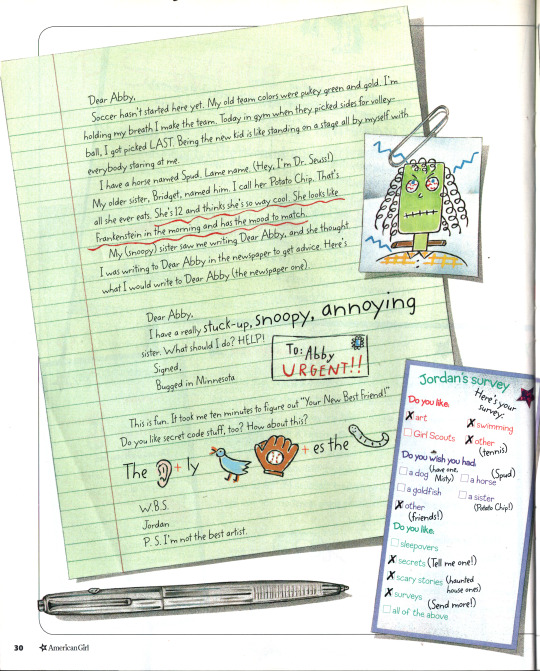 Dear Abby,
Soccer hasn't started here yet. My old team colors were pukey green and gold. I'm
holding my breath I make the team. Today in gym when they picked sides for volley-
ball, I got picked LAST. Being the new kid is like standing on a stage all by myself with
everybody staring at me.
I have a horse named Spud. Lame name. (Hey, I'm Dr. Seuss!)
My older sister, Bridget, named him. I call her Potato Chip. That's
all she ever eats. She's 12 and thinks she's so way cool. She looks like
Frankenstein in the morning and has the mood to match.
My (snoopy) sister saw me writing Dear Abby, and she thought
I was writing to Dear Abby in the newspaper to get advice. Here's
what I would write to Dear Abby (the newspaper one).
Dear Abby,
I have a really stuck-up, snoopy, annoying
sister. What should I do? HELP!
Signed,
Bugged in Minnesota
To: Abby
URGENT!!
This is fun. It took me ten minutes to figure out "Your New Best Friend!"
Do you like secret code stuff, too? How about this?
The + ly + es the
W.B.S.
Jordan
P.S. I'm not the best artist.
Jordan's survey
Here's your
survey:
Do you like:
X art
X swimming
Girl Scouts
X other
(tennis)
Do you wish you had:
a dog (have one, Misty)
a horse (Spud)
a goldfish
a sister
(Potato Chip!)
X other
(friends!)
Do you like:
sleepovers
X secrets (Tell me one!)
X scary stories (haunted
house ones)
X surveys (Send more!)
all of the above
30 American Girl